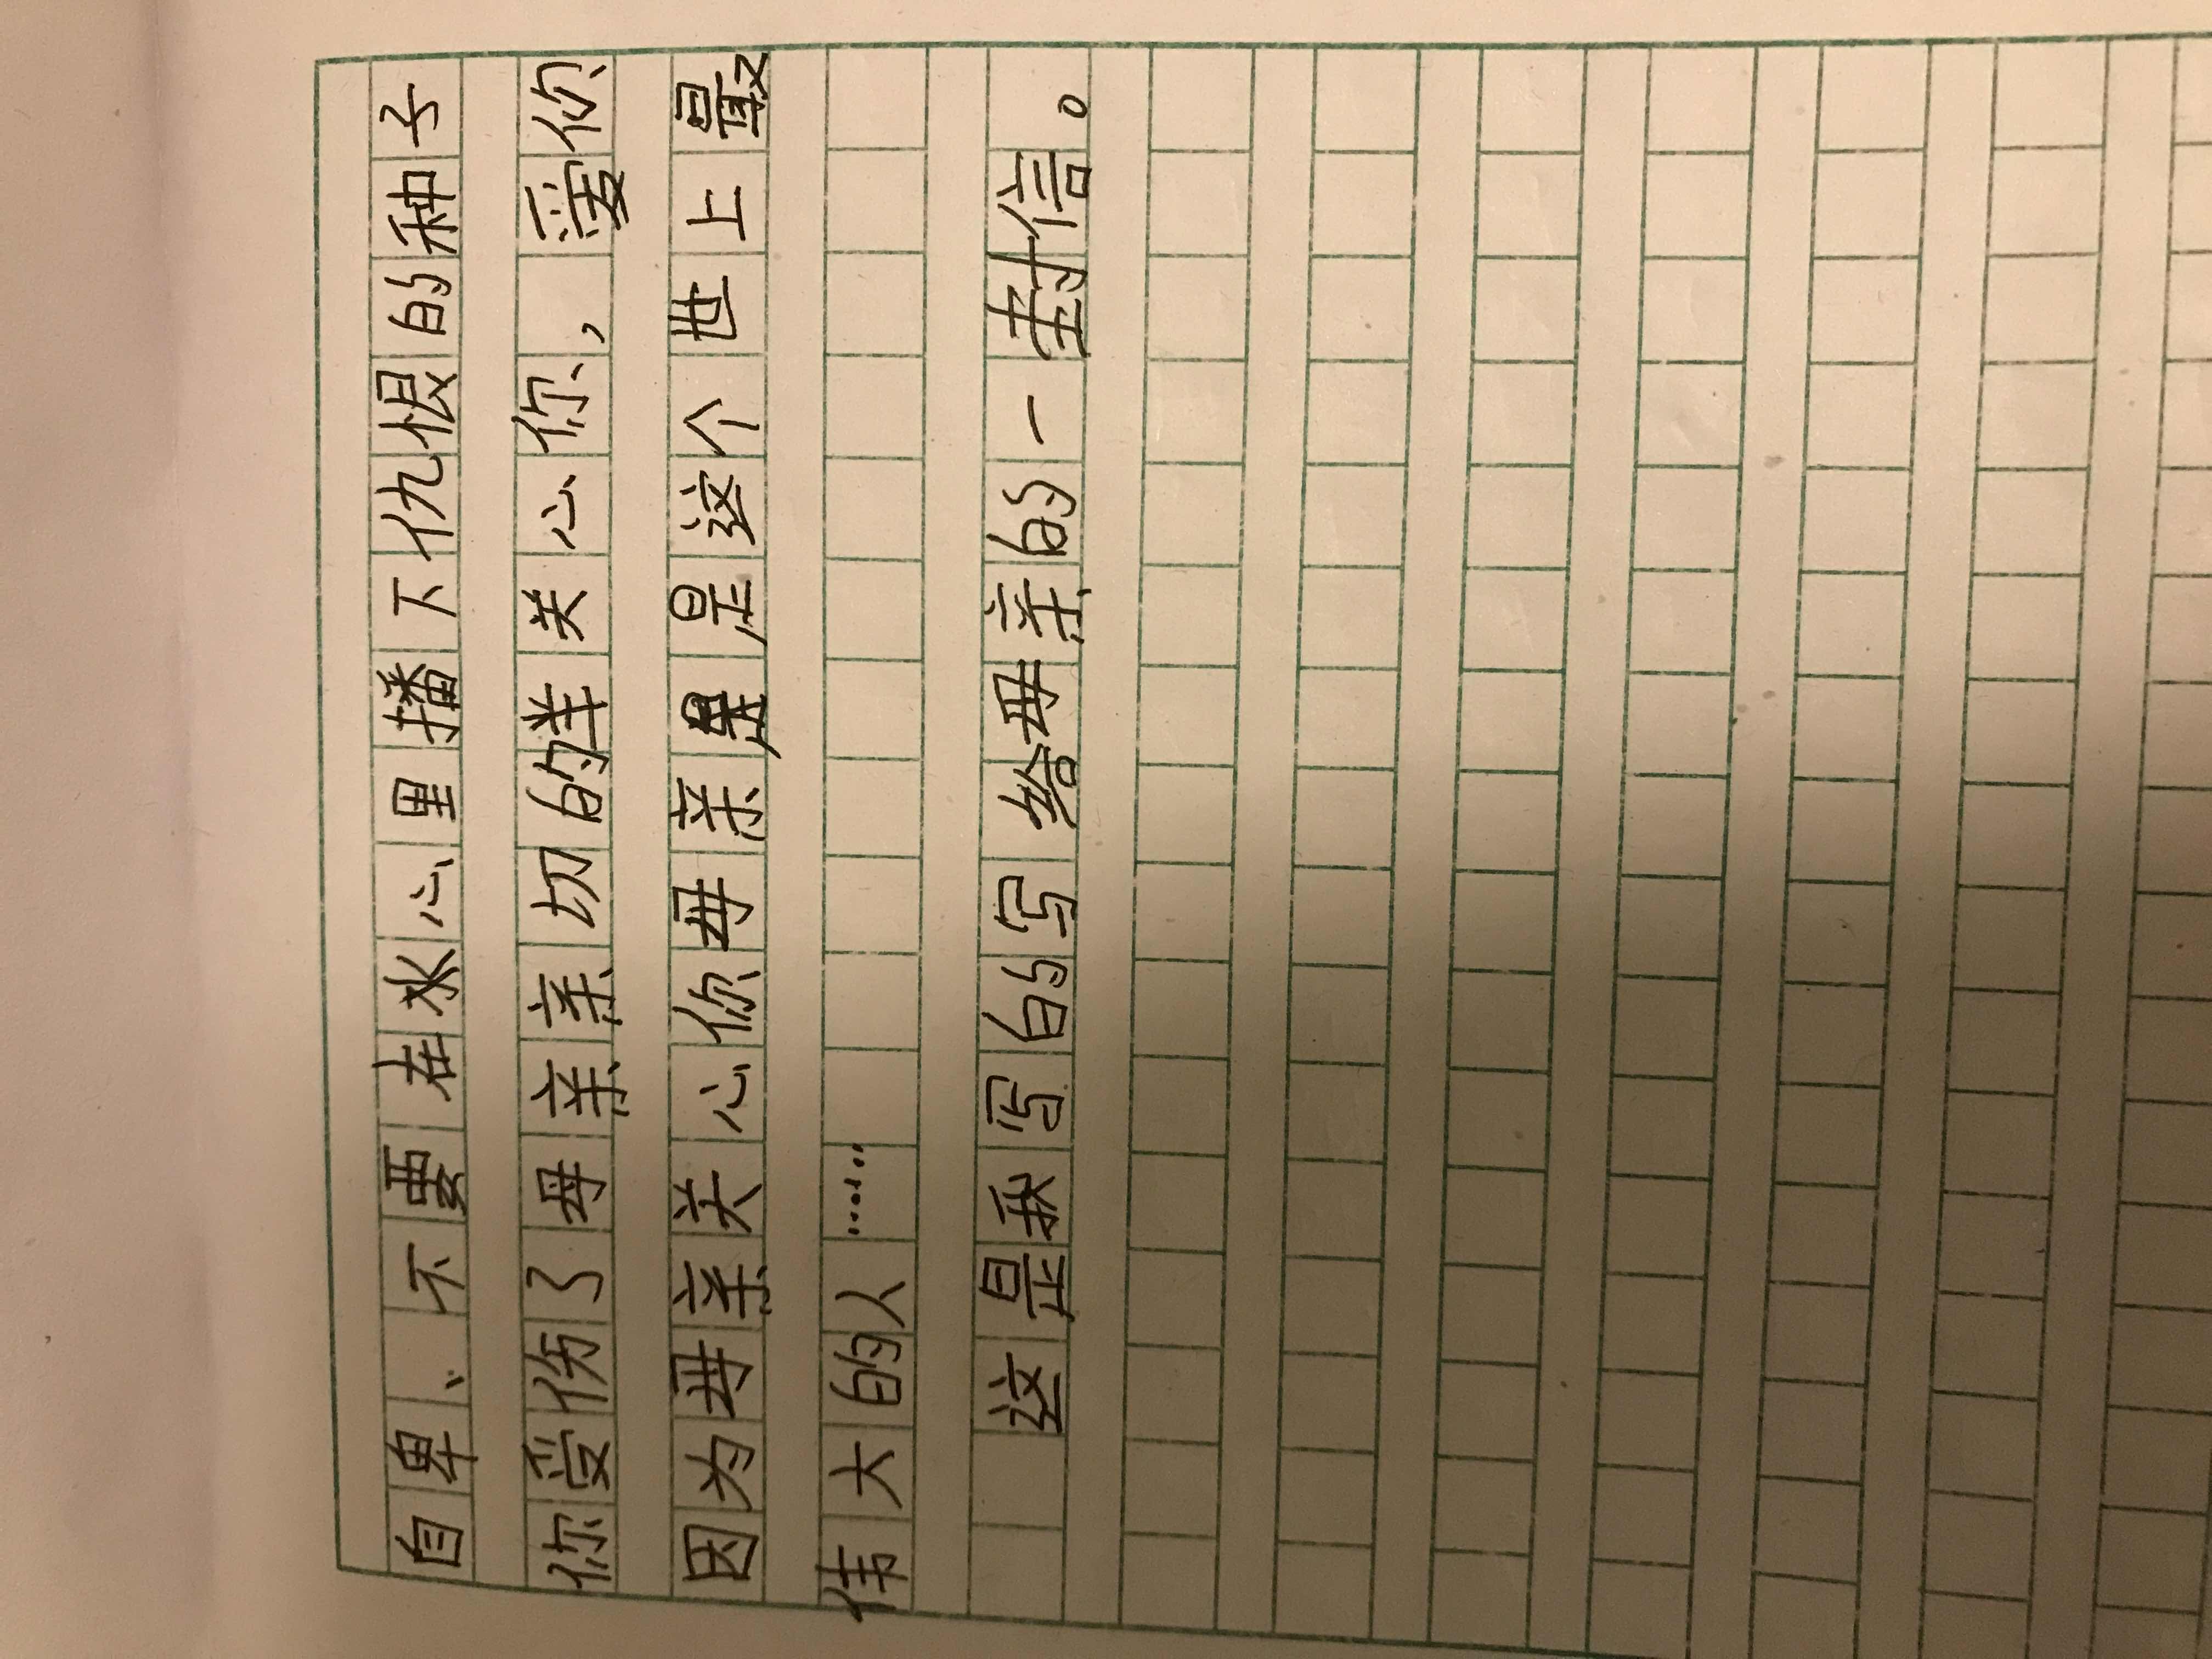 自卑、不要在水心里播下仇恨的种子
你受伤了母亲亲切的样关心你，爱你
因为母亲关心你母亲是这个世上最
伟大的人……
这是我写的写给母亲的一封信。